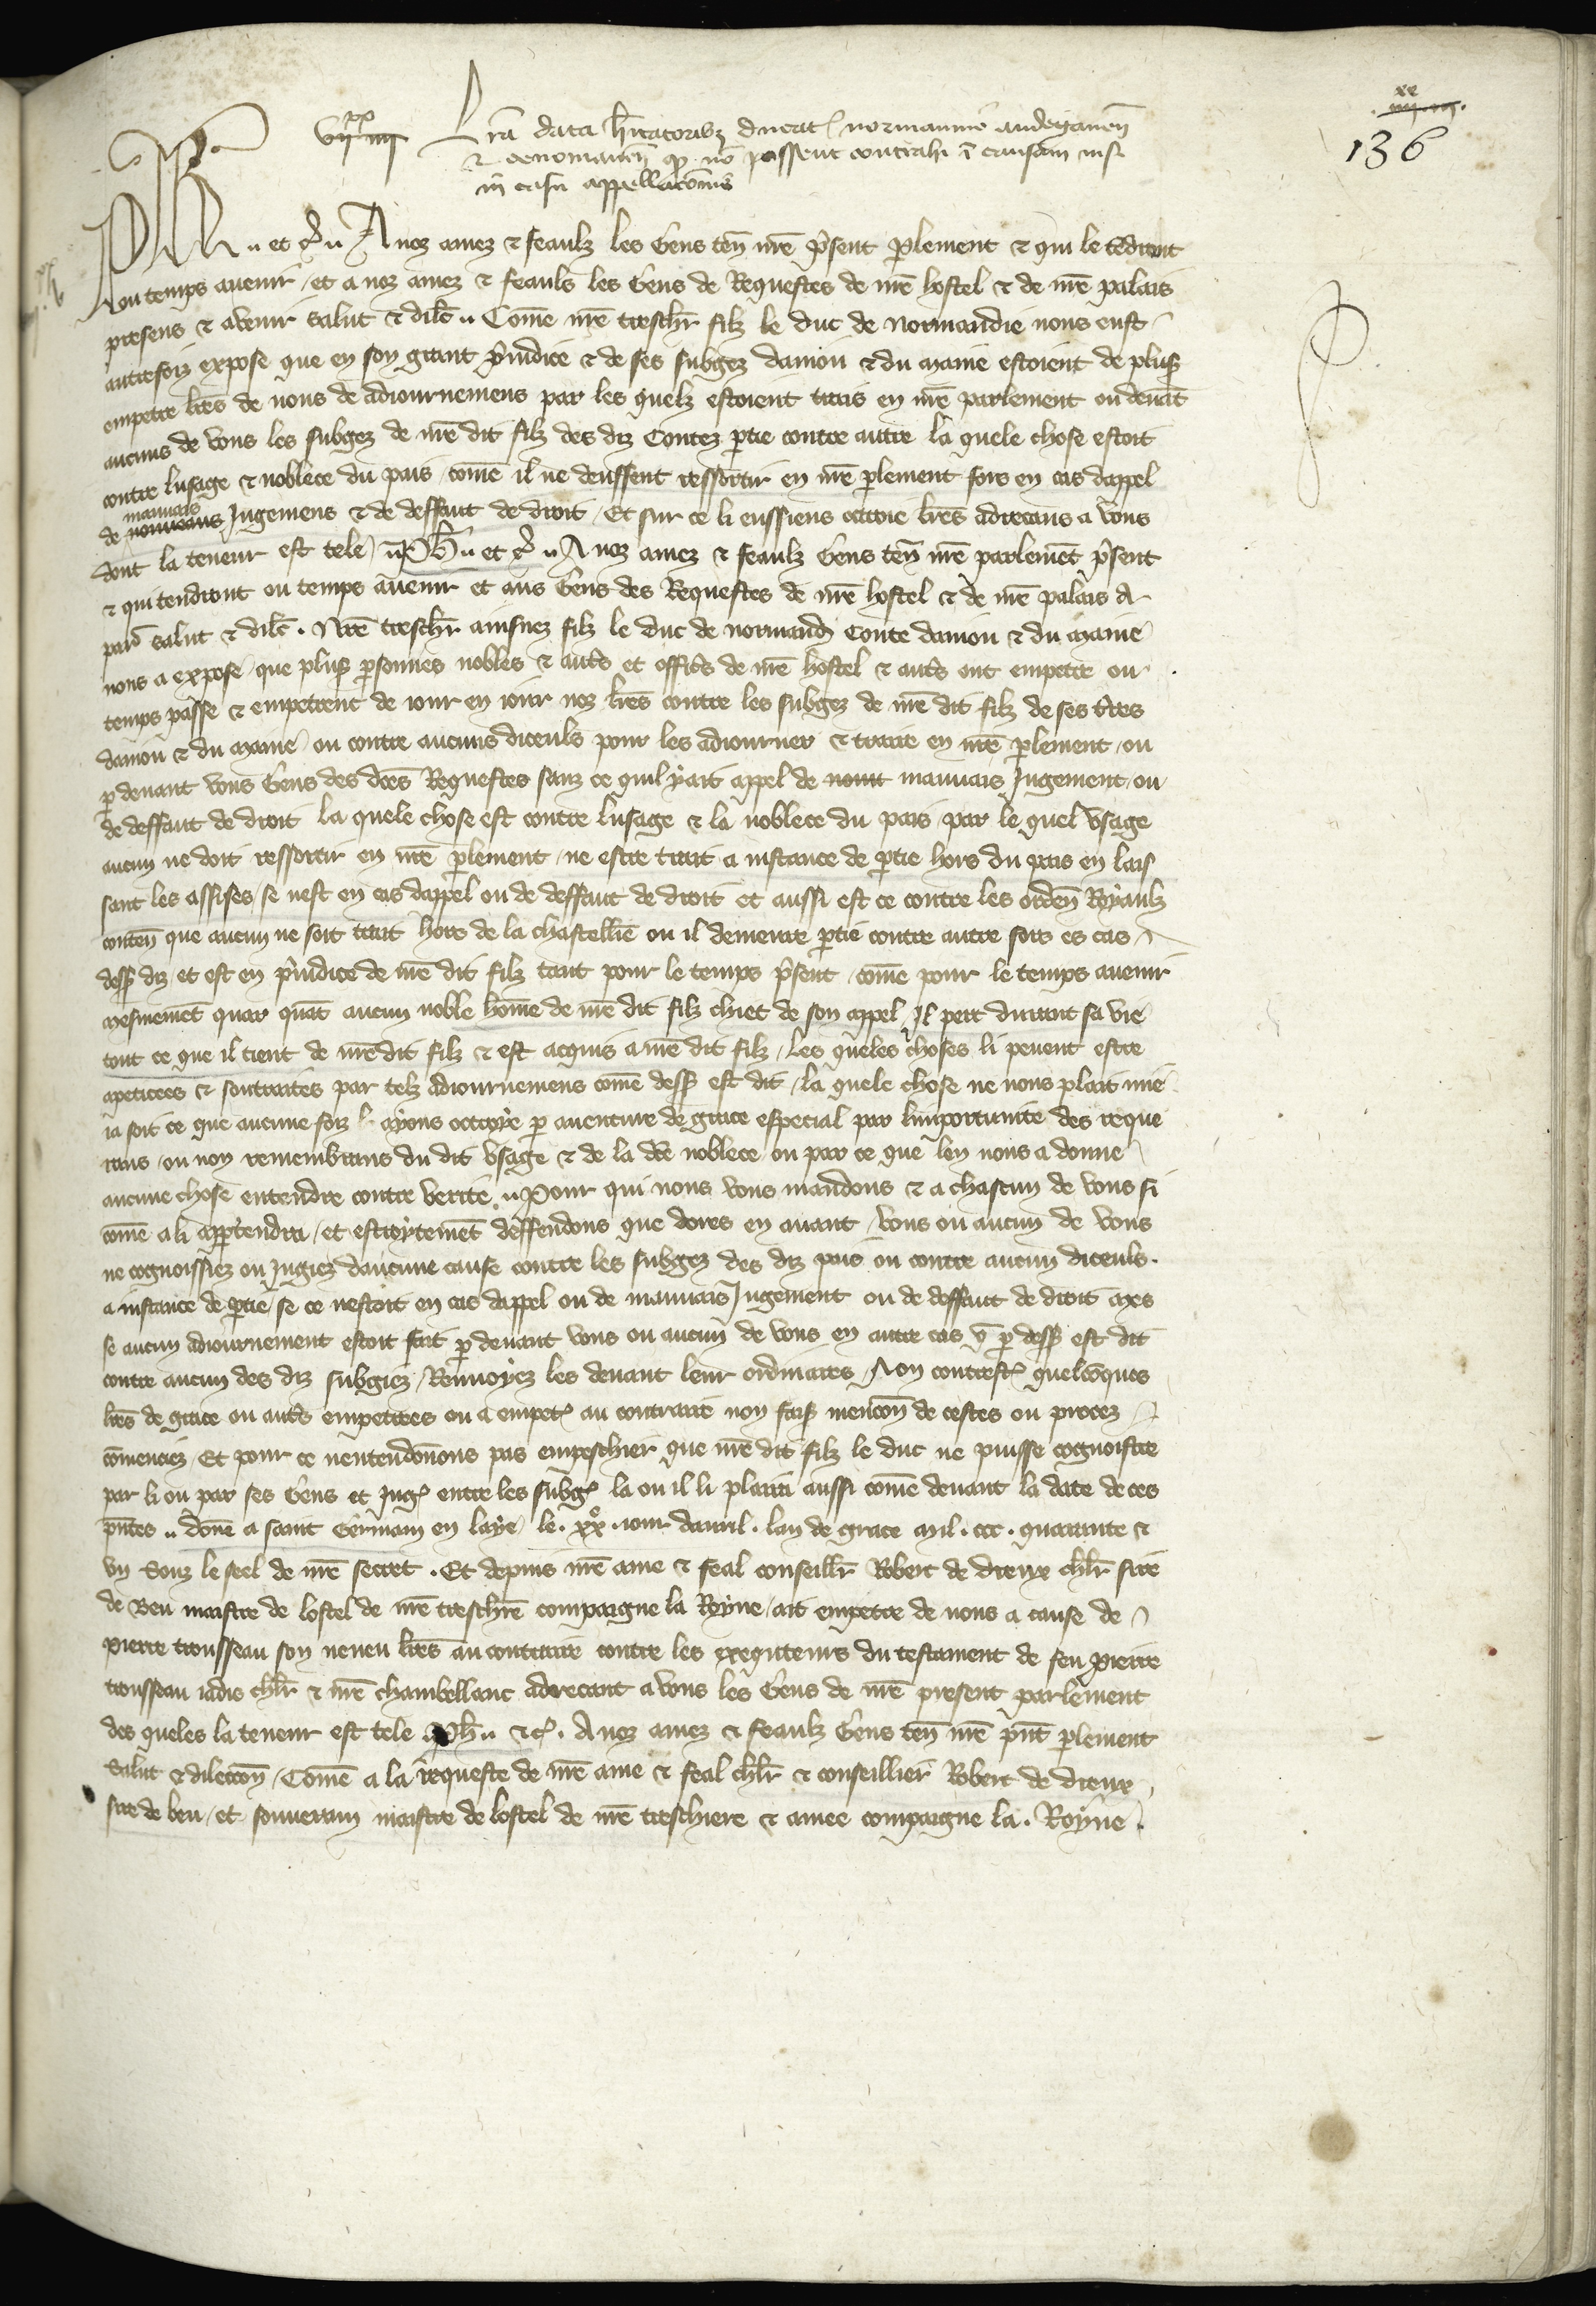 136
Lra data habitatoribz ducat normannie andegaven
& cenomanen q no possent contrahi i causam nisi
in casu appellacionis
Ph et c A noz amez & feaulz les Gens ten nre psent plement & qui le tedront
ou temps avenir / et a noz amez & feauls les Gens de Requestes de nre hostel & de nre palais
presens & avenir salut & dilc Come nre treschr filz le duc de Normandie nous eust
autrefoiz expose que en son grant pjudice & de ses subgez danjou & du Maine estoient de plus
empetre lres de nous de adjournemens par les quelz estoient traiz en nre parlement ou devat
aucuns de vous les subgez de nre dit filz des diz Contez ptie contre autre la quele chose estoit
contre lusage & noblece du pais / come il ne deussent ressortir en nre plement fors en cas dappel
de nouveaus mauvais Jugemens & de deffaut de droit / Et sur ce li eussiens ottroie lres adrecans a vous
dont la teneur est tele Ph et c A noz amez & feaulz Gens ten nre parlemet psent
& qui tendront ou temps avenir et aus Gens des Requestes de nre hostel & de nre palais a
par salut & dilc . Nre treschr ainsnez filz le duc de normand Conte danjou & du Maine
nous a expose que plus psonnes nobles & autrs et offics de nre hostel & autrs ont empetre ou
temps passe & empetrent de jour en jour noz lres contre les subgez de nre dit filz de ses tres
danjou & du Maine ou contre aucuns diceuls pour les adjourner & traire en nre plement / ou
p devant vous Gens des dces Requestes sanz ce quil y ait appel de mauvais Jugement ou
de deffaut de droit la quele chose est contre lusage & la noblece du pais par le quel usage
aucun ne doit ressortir en nre plement / ne estre trait a instance de ptie hors du pais en lais
sant les assises / se nest en cas dappel ou de deffaut de droit et aussi est ce contre les orden Royaulz
conten que aucun ne soit trait hors de la chastellie ou il demeure ptie contre autre fors es cas
dess diz / et est en pjudice de nre dit filz tant pour le temps psent / come pour le temps avenir
Mesmemet quar quat aucun noble home de nre dit filz chiet de son appel / Il pert durant sa vie
tout ce que il tient de nre dit filz & est acquis a nre dit filz / les queles choses li pevent estre
apeticees & soutraites par telz adjournemens come dess est dit / la quele chose ne nous plait mie
ja soit ce que aucune foiz l ayons ottroye p aventure de grace especial par limportunite des reque
rans / ou non remembrans du dit usage & de la dce noblece ou par ce que len nous a donne
aucune chose entendre contre verite Pour qui nous vous mandons & a chascun de vous si
come a li apptendra / et estroytemet deffendons que dores en avant vous ou aucun de vous
ne cognoissiez ou Jugiez daucune cause contre les subgez des diz pais ou contre aucun diceuls .
a instance de ptie / se ce nestoit en cas dappel ou de mauvais Jugement ou de deffaut de droit Mes
se aucun adjournement estoit fait p devant vous ou aucun de vous en autre cas q p dess est dit
contre aucun des diz subgiez / Renvoyez les devant leur ordinaires / Non contrest quelcoques
lres de grace ou autrs empetrees ou a empet au contraire non fais mencon de cestes ou procez
comenciez / Et pour ce nentendonons pas empeschier que nre dit filz le duc ne puisse cognoistre
par li ou par ses Gens et Jug entre les subg la ou il li plaira aussi come devant la date de ces
pntes done a saint Germain en laye le . xxo . jour davril . lan de grace Mil . ccc . quarante &
un souz le seel de nre secret . Et depuis nre ame & feal conseillr Robert de dreux chlr sire
de Beu maistre de lostel de nre treschre compaigne la Royne / ait empetre de nous a cause de
Pierre trousseau son neveu lres au contraire contre les exequteurs du testament de feu pierre
trousseau jadis chlr & nre chambellanc adrecant a vous les Gens de nre present parlement
des queles la teneur est tele Ph &c . A noz amez & feaulz Gens ten nre pnt plement
salut & dileccon / Come a la requeste de nre ame & feal chlr & conseillier Robert de dreux
sire de beu / et souverain maistre de lostel de nre treschiere & amee compaigne la . Royne .